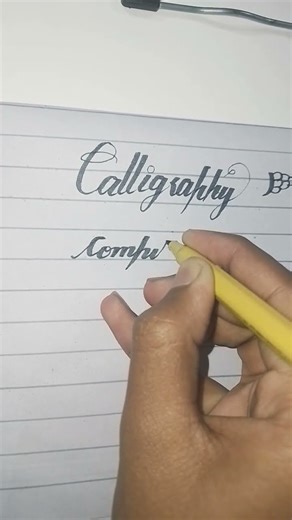 Calligraphy B
comp